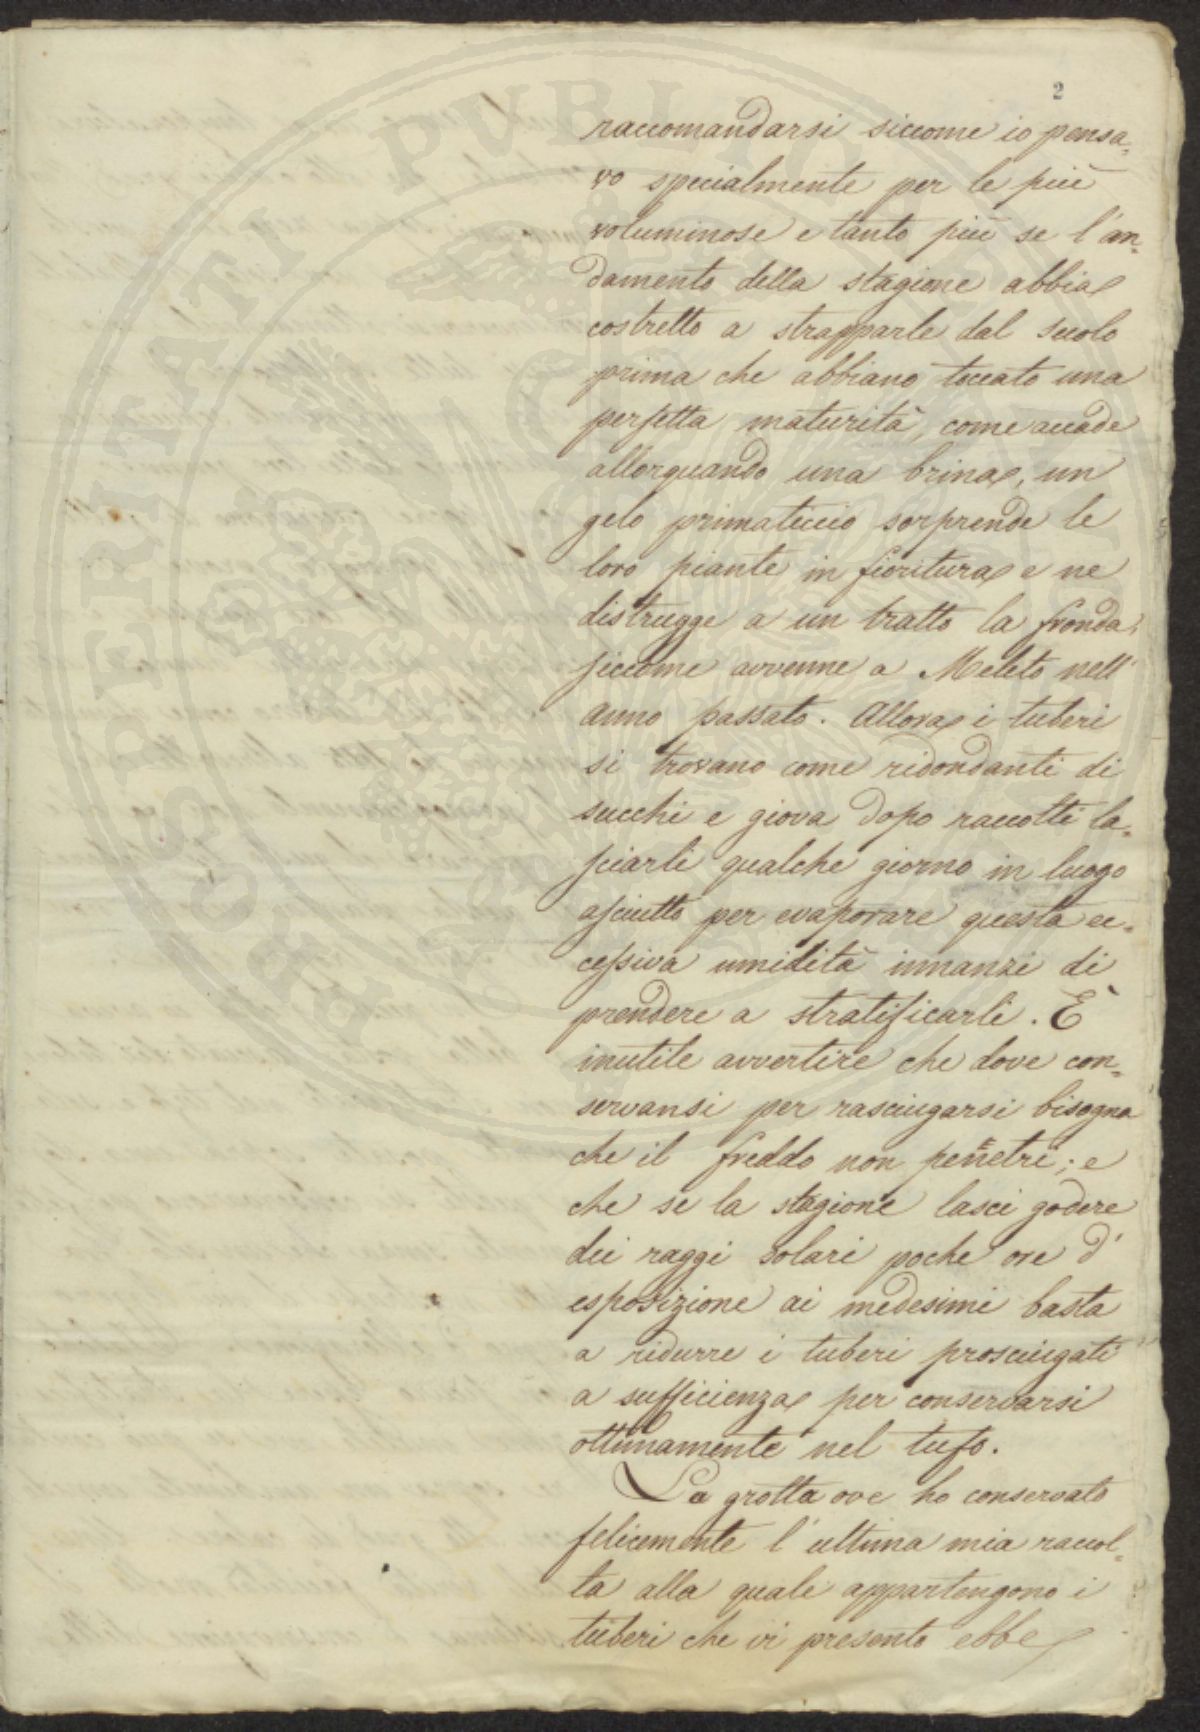 2
raccomandarsi siccome io pensa=
vo specialmente per le più
voluminose e tanto più se l'an=
damento della stagione abbia
costretto a strapparle dal suolo
prima che abbiano toccato una
perfetta maturità, come accade
allorquando una brina, un
gelo primaticcio sorprende le
loro piante in fioritura e ne
distrugge a un tratto la fronda,
siccome avvenne a Meleto nell'
anno passato. Allora i tuberi
si trovano come ridondanti di
succhi e giova dopo raccolti la=
sciarli qualche giorno in luogo
asciutto per evaporare questa ec=
cessiva umidità innanzi di
prendere a stratificarli. È
inutile avvertire che dove con=
servansi per rasciugarsi bisogna
che il freddo non penetri; e
che se la stagione lasci godere
dei raggi solari poche ore d'
esposizione ai medesimi basta
a ridurre i tuberi prosciugati
a sufficienza per conservarsi
ottimamente nel tufo.
La grotta ove ho conservato
felicemente l'ultima mia raccol=
ta alla quale appartengono i
tuberi che vi presento ebbe
PROSPERITATI PUBLICAE